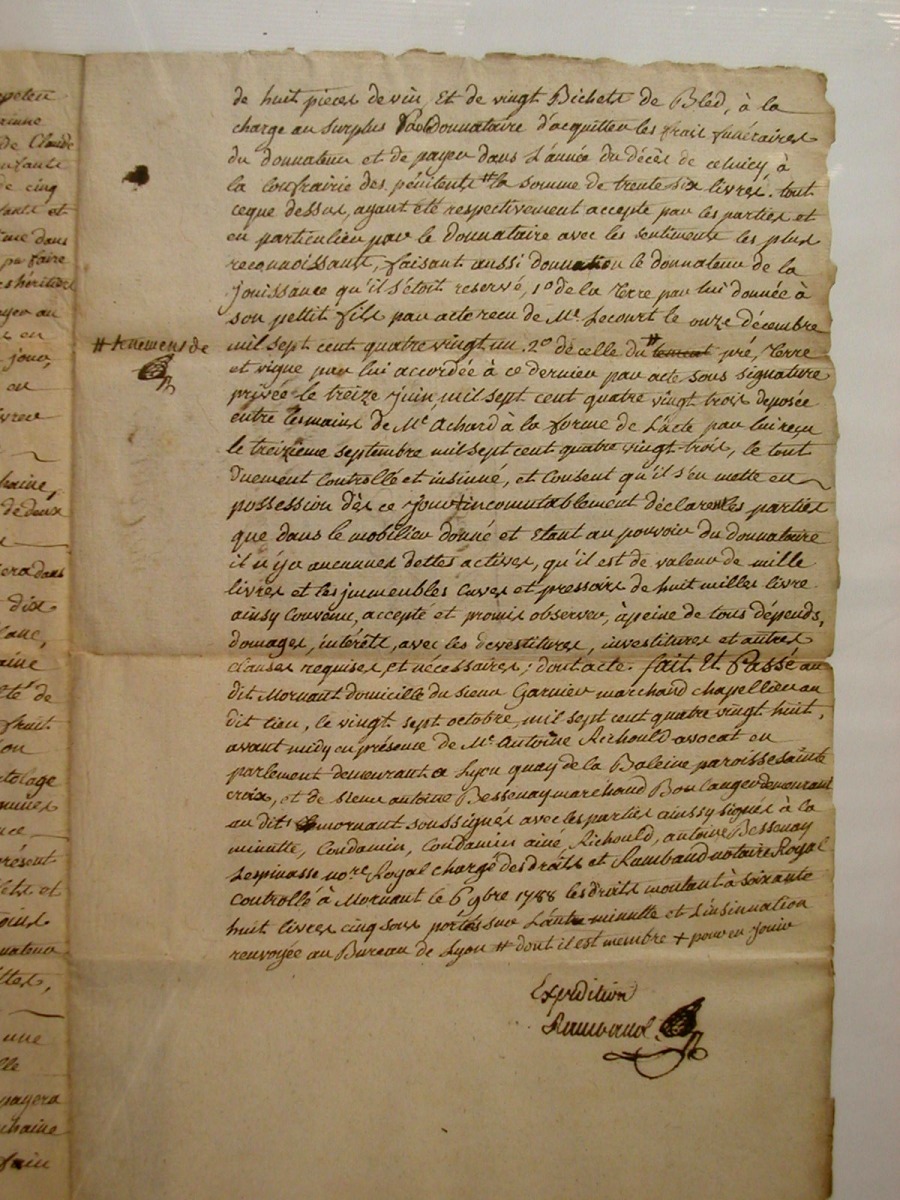 de huit pieces de vin, et de vingt Bichets de Bled, à la
charge au surplus par donnataire d'acquitter les frait funéraires
du donnateur et de payer dans L'année du décès de celuicy, à
la confrairie des pénitents # la somme de trente six livres. tout
ceque dessus, ayant été respectivement accepté par les parties et
en particulier par le Donnataire avec les sentiments les plus
reconnoissants, faisant aussi donnation le donnateur de la
jouissance qu'il s'étoit reservé, 1º de la Terre par lui donnée à
son pettit fils par acte recu de Me. Lecourt le onze décembre
# tenemens de
mil sept cent quatre vingt un. 2º de celle du # pré, Terre
et vigne par lui accordée à ce dernier par acte sous signature
privée le treize juin mil sept cent quatre vingt trois deposée
entre lesmains de Me. Achard à la forme de L'acte par lui reçu
le treizieme septembre mil sept cent quatre vingt trois, le tout
duement Controllé et insinué, et Consent qu'il s'en mette en
possession dès ce jour + incommutablement déclarent les parties
que dans le mobilier donné et Etant au pouvoir du donnataire
il n'y a aucunnes dettes actives, qu'il est de valeur de mille
livres et les immeubles cuves et pressoirs de huit milles livre
ainsy Convenu, accepté et promis observer, à peine de tous dépends,
domages, intérêts, avec les devestitures, investitures et autres
clauses requises, et nécessaires; dont acte. fait Et Passé au
dit Mornant domicille du sieur Garnier marchand chapellier au
dit lieu, le vingt sept octobre mil sept cent quatre vingt huit,
avant midy en présence de Me. Antoine Richould avocat en
parlement demeurant a Lyon quay de la Baleine paroisse sainte
croix, et de sieur antoine Bessenay marchand Boulanger demeurant
au dit mornant soussignés avec les parties ainssy signés à la
minutte, Condamin, Condamin ainé, Richould, antoine Bessenay
Lespinasse nore. Royal chargé des droits et Rambaud notaire Royal
Controllé à Mornant le 6 9bre 1788 les droits montant à soixante
huit livres cinq sous portés sur minutte et L'insinuation
renvoyée au Bureau de Lyon # dont il est membre + pour en jouir
Expédition
Rambaud